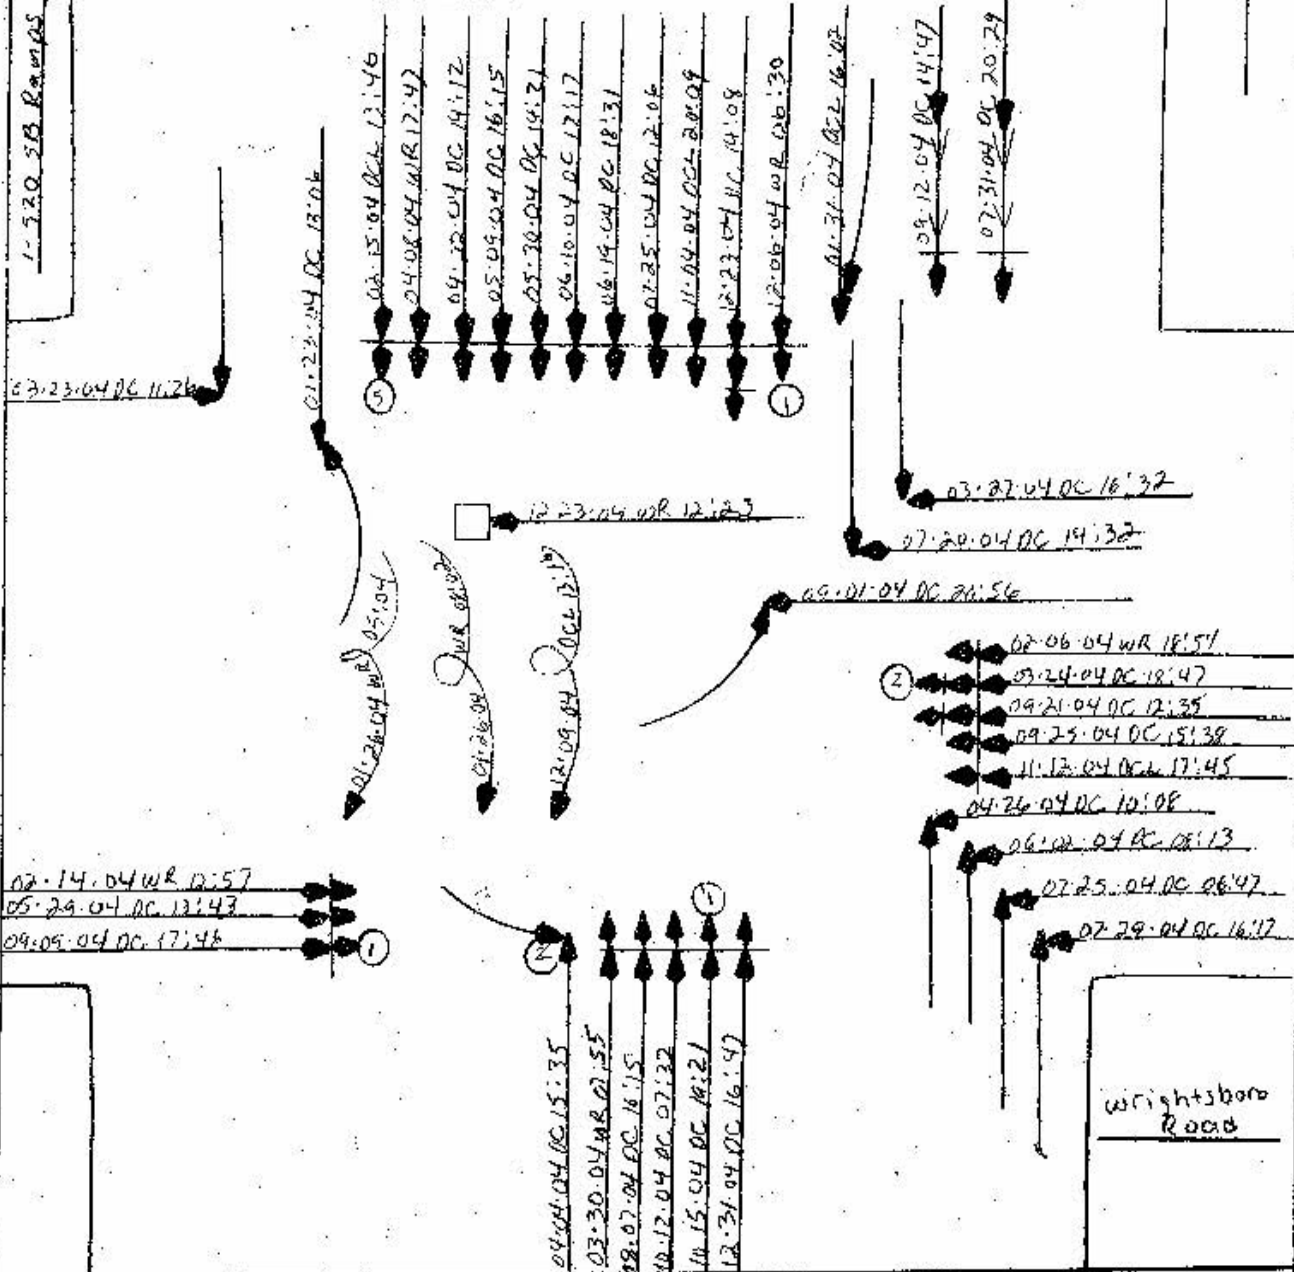 I-520 SB Ramps
02·15·04 DCL 17:46
04·08·04 WR 17:47
04·22·04 DC 14:12
05·09·04 DC 16:15
05·30·04 DC 14:21
06·10·04 DC 17:17
06·19·04 DC 18:31
07·25·04 DC 12:06
11·04·04 DCL 20:09
12·23·04 DC 14:08
12·06·04 WR 06:30
01·31·04 DCL 16:02
09·12·04 DC 14:47
07·31·04 DC 20:29
01·23·04 DC 13:06
03·23·04 DC 11:26
5
1
03·27·04 DC 16:32
12·23·04 WR 12:23
07·20·04 DC 14:32
DC 20:56
01·26·04 WR 05:04
01·26·04 WR
12·09·04 DCL
02·06·04 WR 18:57
2
03·24·04 DC 18:47
09·21·04 DC 12:35
09·25·04 DC 15:38
11·12·04 DCL 17:45
04·26·04 DC 10:08
06·02·04 DC 08:13
07·25·04 DC 06:47
07·29·04 DC 16:17
02·14·04 WR 12:57
05·29·04 DC 13:43
09·09·04 DC
1
2
1
04·04·04 DC 15:35
03·30·04 WR 07:55
08·07·04 DC 16:15
10·12·04 DC 07:32
10·15·04 DC 14:21
12·31·04 DC 16:47
Wrightsboro
Road